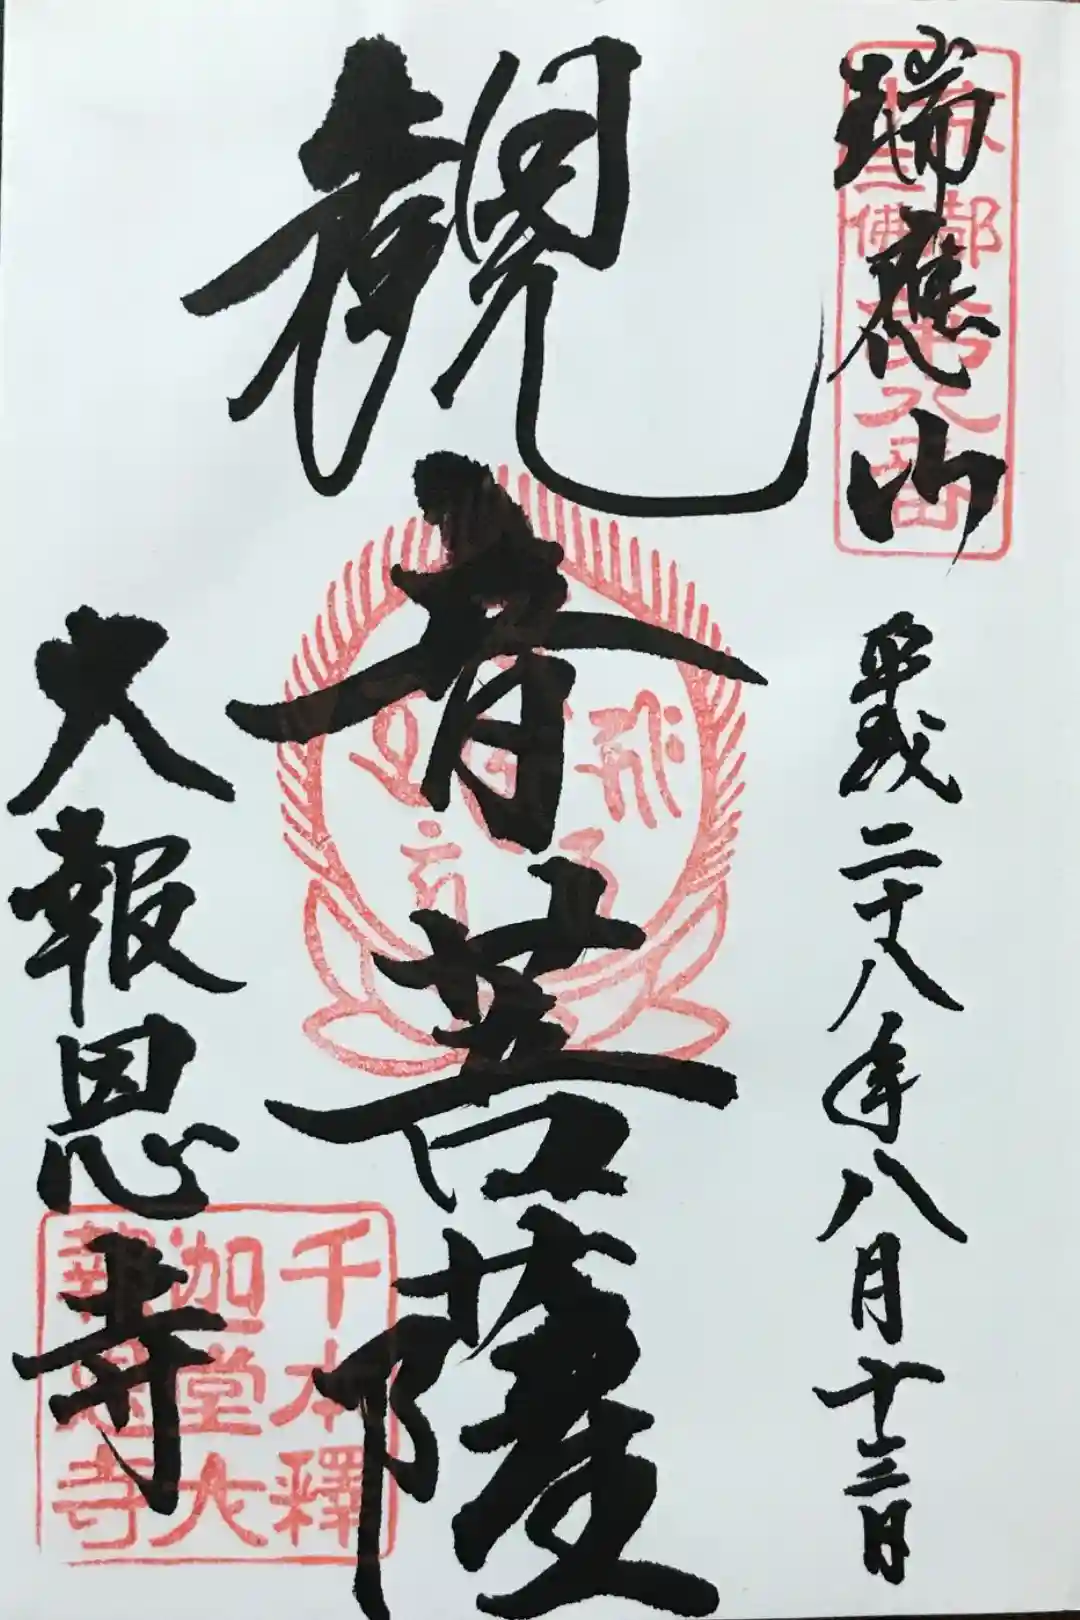 瑞應山
平成二十八年八月十三日
観音菩薩
大報恩寺
千本釋
迦堂大
報恩寺